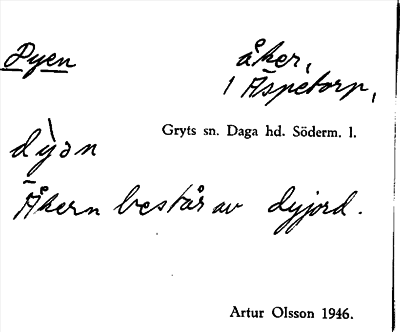 Dyen åker,
1 Äspetorp,
Gryts sn. Daga hd. Söderm. l.
dỳən
Åkern består av dyjord.
Artur Olsson 1946.